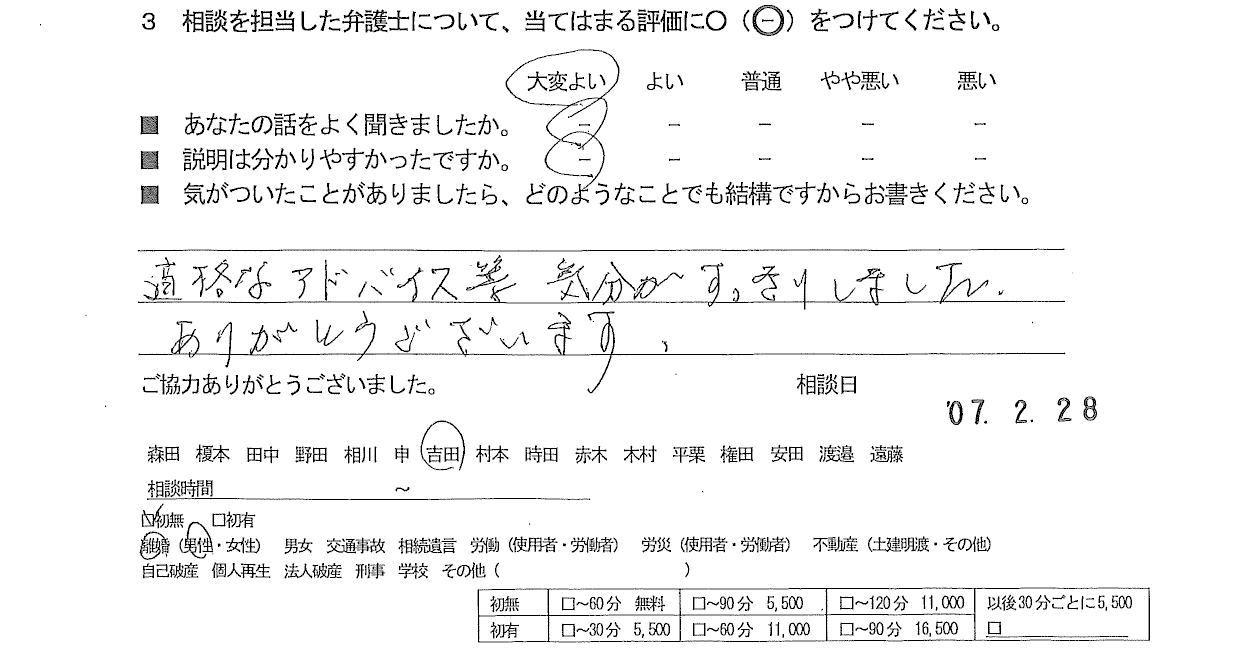 3 相談を担当した弁護士について、当てはまる評価に○（㊀）をつけてください。
大変よい よい 普通 やや悪い 悪い
■ あなたの話をよく聞きましたか。 － － － － －
■ 説明は分かりやすかったですか。 － － － － －
■ 気がついたことがありましたら、どのようなことでも結構ですからお書きください。
適格なアドバイス等 気分がすっきりしました.
ありがとうございます、
ご協力ありがとうございました。 相談日
'07. 2. 28
森田 榎本 田中 野田 相川 申 吉田 村本 時田 赤木 木村 平栗 権田 安田 渡邉 遠藤
相談時間 ～
☑初無 □初有
離婚（男性・女性） 男女 交通事故 相続遺言 労働（使用者・労働者） 労災（使用者・労働者） 不動産（土建明渡・その他）
自己破産 個人再生 法人破産 刑事 学校 その他（ ）
初無 □～60分 無料 □～90分 5,500 □～120分 11,000 以後30分ごとに5,500
初有 □～30分 5,500 □～60分 11,000 □～90分 16,500 □